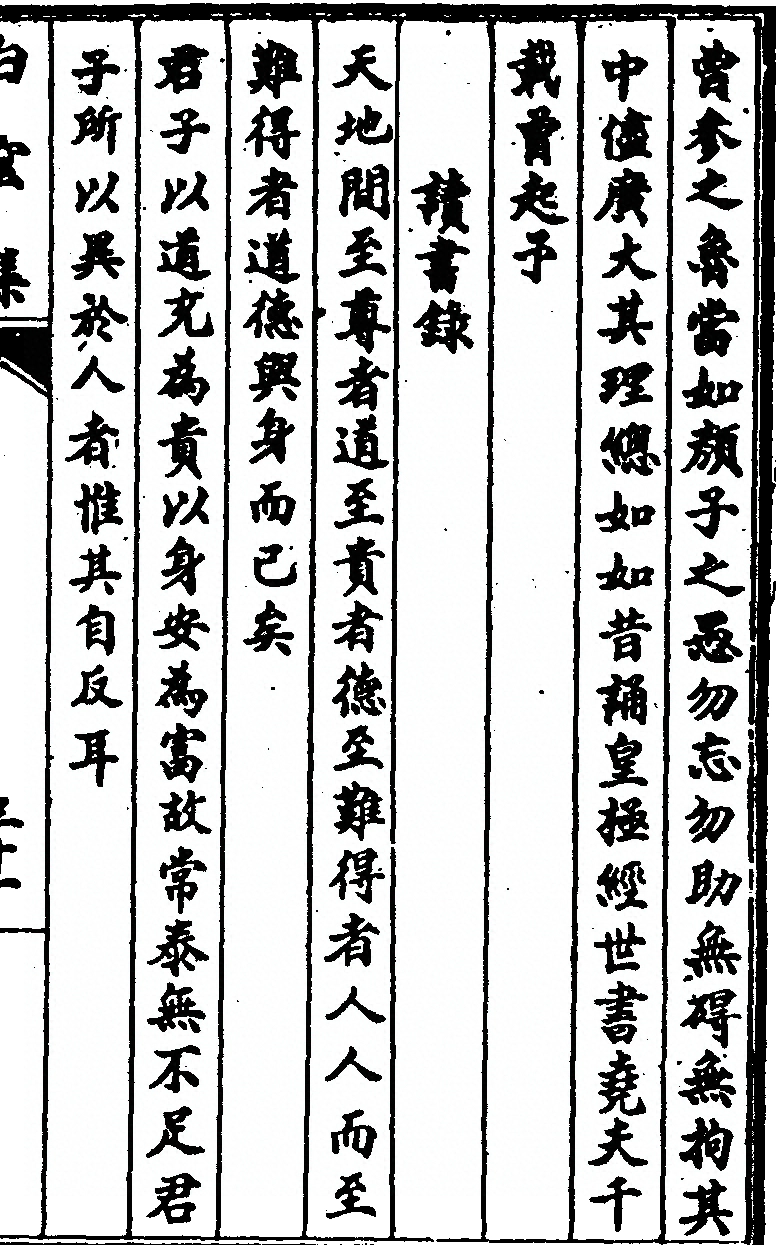 曾參之魯當如顏子之愚勿忘勿助無礙無拘其
中儘廣大其理總如如昔誦皇極經世書堯夫千
載曾起予
讀書錄
天地間至尊者道至貴者德至難得者人人而至
難得者道德與身而已矣
君子以道充為貴以身安為富故常泰無不足君
子所以異於人者惟其自反耳
白雲集
三十一